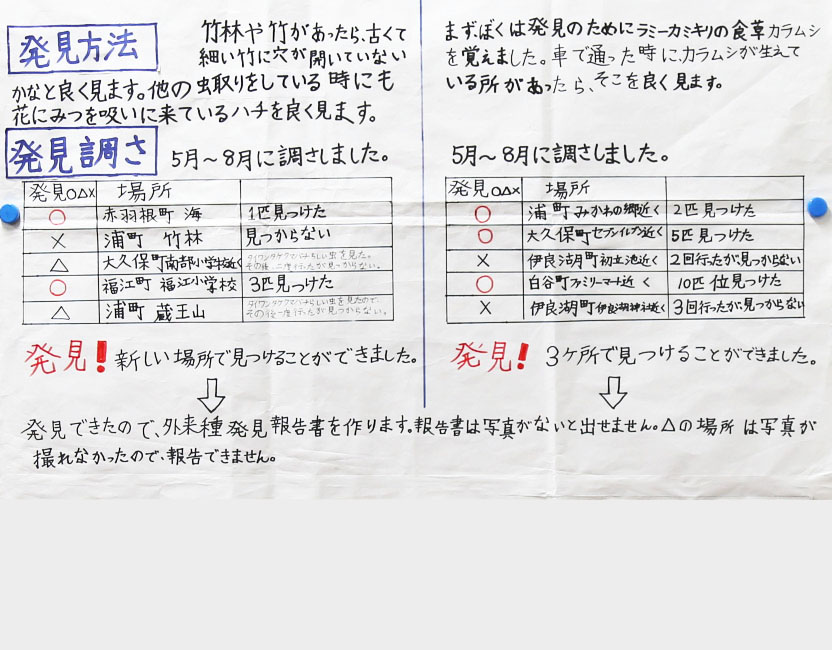 発見方法
竹林や竹があったら、古くて
細い竹に穴が開いていない
かなと良く見ます。他の虫取りをしている時にも
花にみつを吸いに来ているハチを良く見ます。
発見調さ 5月〜8月に調さしました。
発見○△× 場所
○ 赤羽根町 海 1匹見つけた
× 浦町 竹林 見つからない
△ 大久保町南部小学校近く タイワンタケクマバチらしい虫を見た。
その後、二度行ったが見つからない。
○ 福江町 福江小学校 3匹見つけた
△ 浦町 蔵王山 タイワンタケクマバチらしい虫を見たので、
その後一度行ったが見つからない。
発見! 新しい場所で見つけることができました。
まずぼくは発見のためにラミーカミキリの食草カラムシ
を覚えました。車で通った時に、カラムシが生えて
いる所があったら、そこを良く見ます。
5月〜8月に調さしました。
発見○△× 場所
○ 浦町みかわの郷近く 2匹見つけた
○ 大久保町セブンイレブン近く 5匹見つけた
× 伊良湖町初立池近く 2回行ったが、見つからない
○ 白谷町ファミリーマート近く 10匹位見つけた
× 伊良湖町伊良湖神社近く 3回行ったが、見つからない
発見! 3ケ所で見つけることができました。
⇩ ⇩
発見できたので、外来種発見報告書を作ります。報告書は写真がないと出せません。△の場所は写真が
撮れなかったので、報告できません。